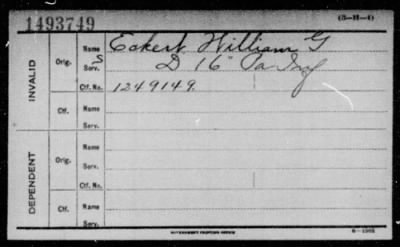 1493749
(3-H-4)
INVALID
Orig.
Name Eckert William G
S
Serv. D 16" Pa Inf
Ctf. No. 1249149.
Ctf.
Name
Serv.
DEPENDENT
Orig.
Name
Serv.
Ctf. No.
Ctf.
Name
Serv.
GOVERNMENT PRINTING OFFICE